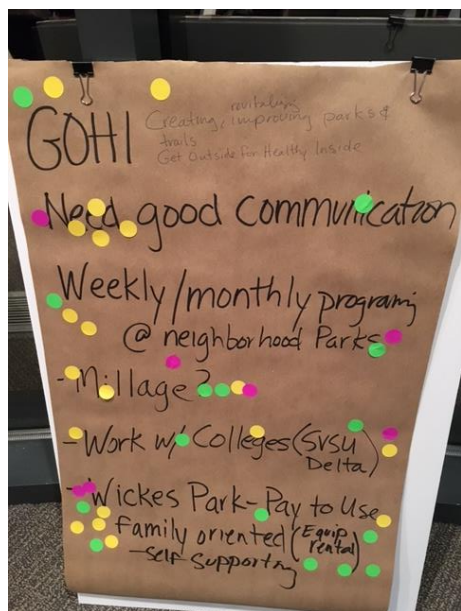 GOHI
Creating, revitalizing, improving parks &
trails
Get Outside for Healthy Inside
Need good communication
Weekly/monthly programing
@ neighborhood Parks
-Millage?
-Work w/ Colleges (SVSU
Delta)
-Wickes Park-Pay to Use
Family oriented (Equip
rental)
-Self Supporting